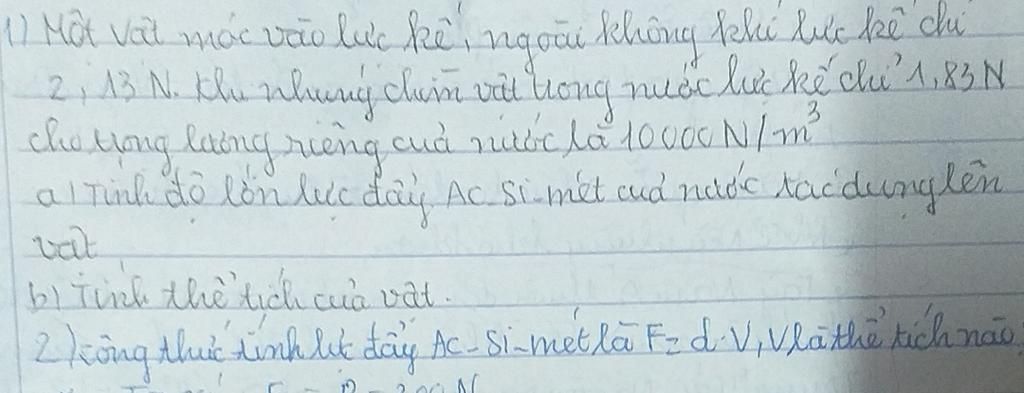 1) Một vật móc vào lực kế, ngoài không khí lực kế chỉ
2,13 N. Khi nhúng chìm vật trong nước lực kế chỉ 1,83N
cho trọng lượng riêng của nước là 10000N/m³
a) Tính độ lớn lực đẩy Ac Si-mét của nước tác dụng lên
vật
b) Tính thể tích của vật.
2) công thức tính lực đẩy Ac-Si-mét là F= d.V, V là thể tích nào